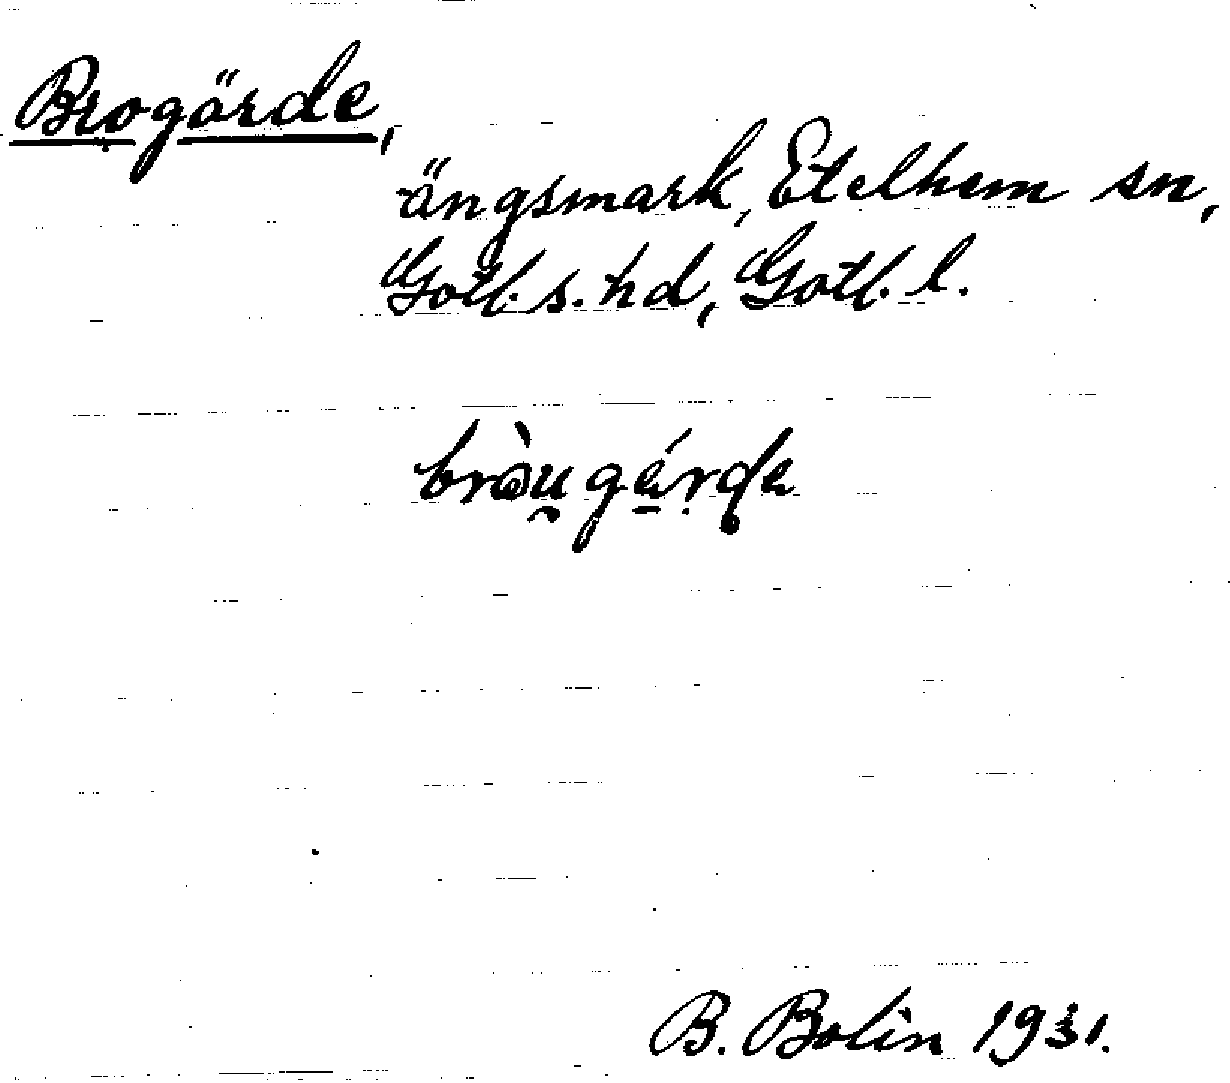 Brogärde,
ängsmark, Etelhem sn,
Gotl. s. hd, Gotl. l.
B. Bolin 1931.